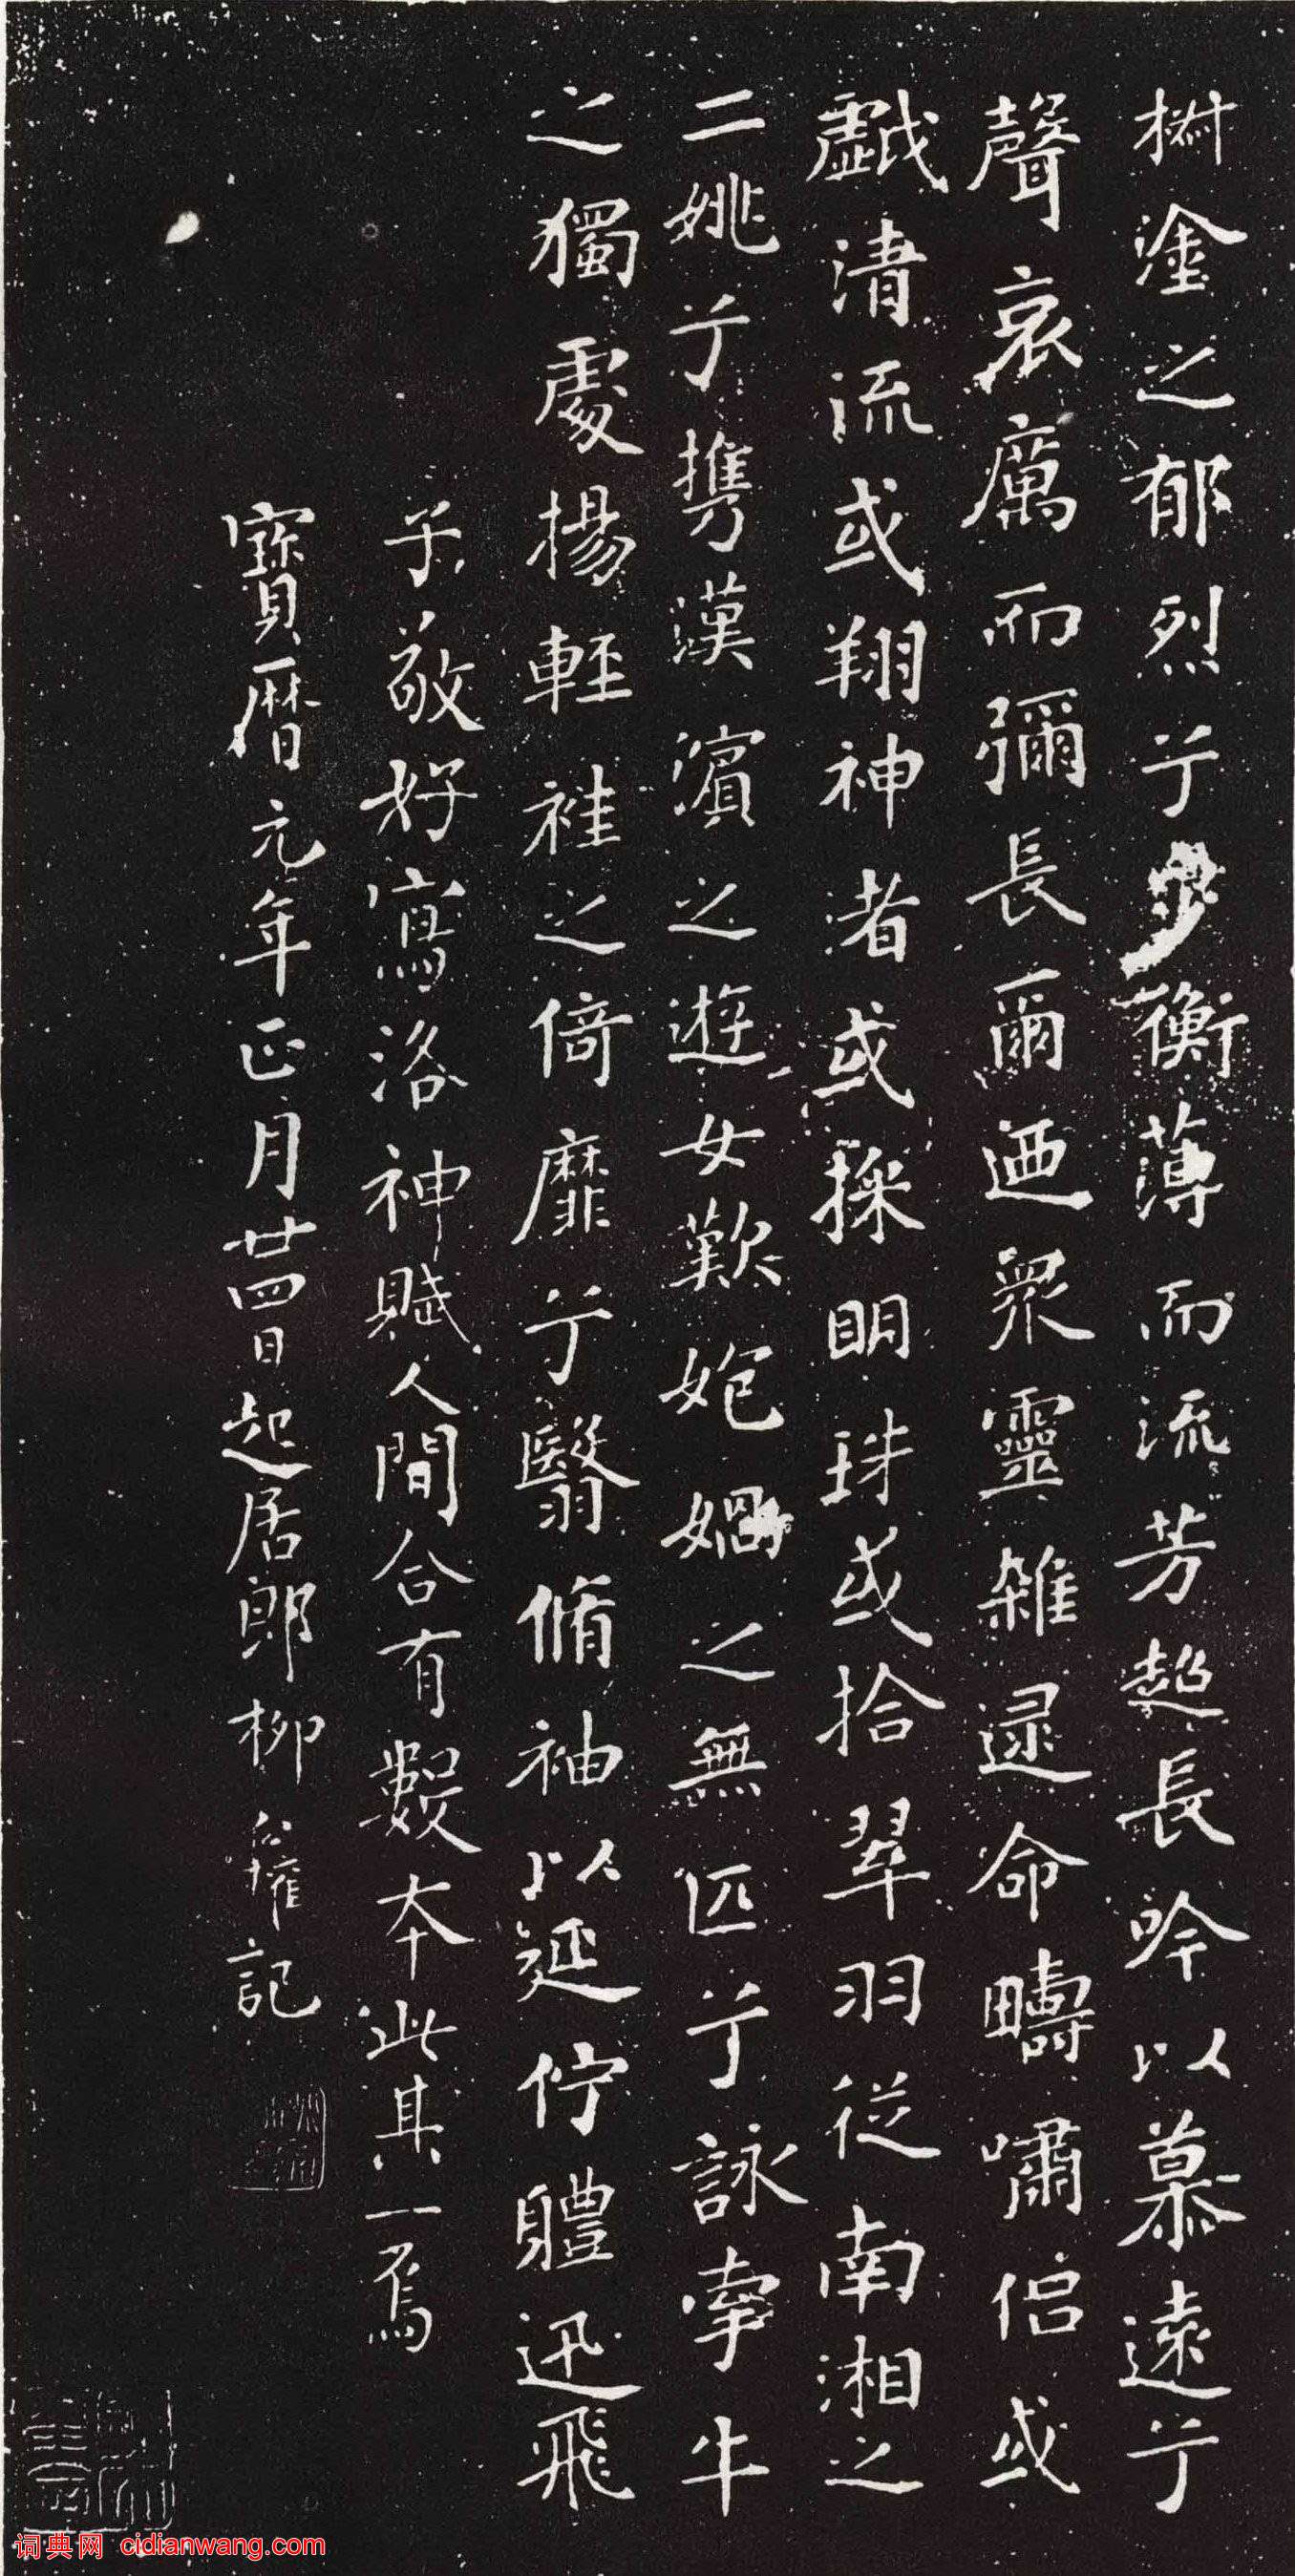 椒塗之郁烈兮步蘅薄而流芳超長吟以慕遠兮
聲哀厲而彌長爾迺衆靈雜遝命疇嘯侶或
戲清流或翔神渚或採明珠或拾翠羽從南湘之
二姚兮攜漢濱之遊女歎匏媧之無匹兮詠牽牛
之獨處揚輕袿之倚靡兮翳脩袖以延佇體迅飛
子敬好寫洛神賦人間合有數本此其一焉
寶曆元年正月廿四日起居郎柳公權記
词典网 cidianwang.com